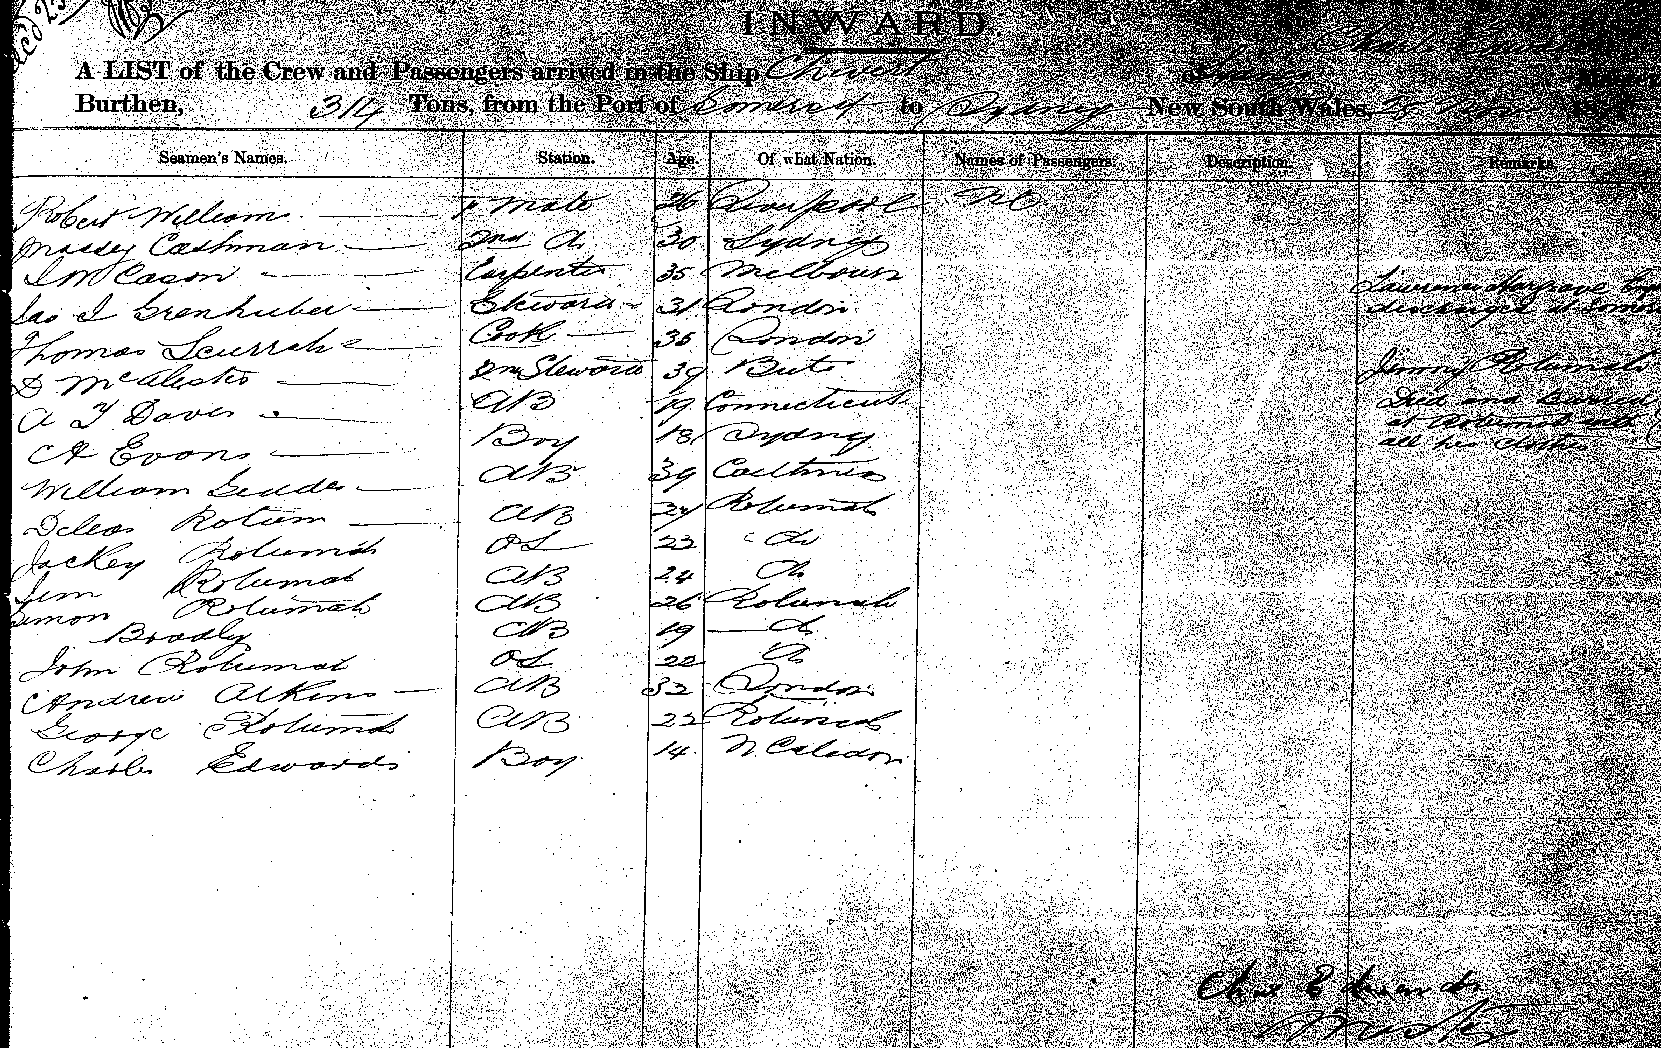 INWARD.
A LIST of the Crew and Passengers arrived in the Ship Chevert of
Burthen, 314 Tons, from the Port of Somerset to Sydney New South Wales,
Seamen's Names. Station. Age. Of what Nation. Names of Passengers. Description. Remarks.
Robert William Mate 26 Liverpool Nil
Massey Cashman 2nd do 30 Sydney
Carpenter 35 Melbourn
Jas Steward 31 London
Thomas Scurrah Cook 35 London
D McAlester Steward 39 Bute
A T Davis AB 19 Connecticut
C A Evans Boy 18 Sydney
William AB 39
Rotum AB 27 Rotumah
Jackey Rotumah OS 22 do
Jim Rotumah AB 24 do
Simon Rotumah AB 26 Rotumah
Bradly AB 19 do
John Rotumah OS 22 do
Andrew Atkins AB 32 London
George Rotumah AB 22 Rotumah
Charles Edwards Boy 14 N Caledon
Lawrence Hargrave
discharged at
Jimmy Rotumah
Died and Buried
at
all his
Chas Edwards
Master